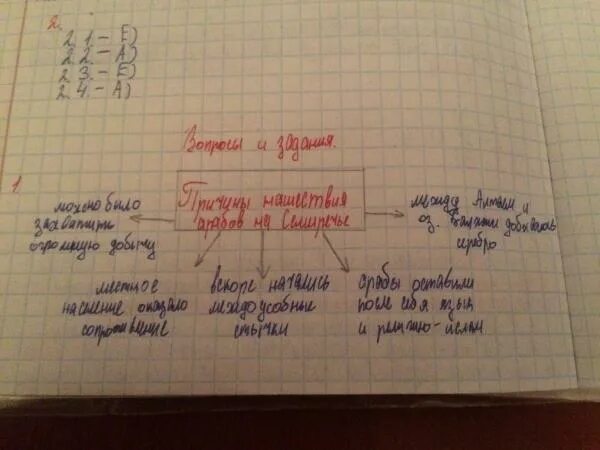 2.
2.1. - Е)
2.2. - А)
2.3. - Е)
2.4. - А)
Вопросы и задания.
1.
Причины нашествия
арабов на Семиречье
можно было
захватить
огромную добычу
между Алтаем и
оз. Балхаш добывалось
серебро
местное
население оказало
сопротивление
вскоре начались
междоусобные
стычки
арабы оставили
после себя язык
и религию-ислам